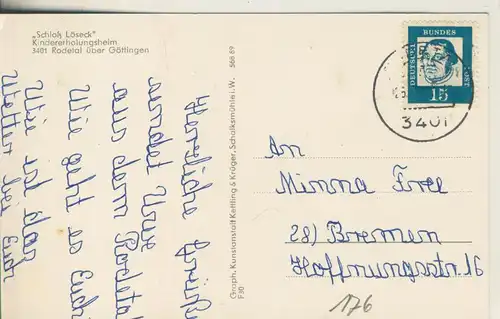 „Schloß Löseck"
Kindererholungsheim
3401 Rodetal über Göttingen
Herzliche Grüße
sendet Uwe
aus dem Rodetal
Wie geht es Euch
Wie ist das
Wetter bei Euch
Graph. Kunstanstalt Kettling & Krüger, Schalksmühle i. W. 566 69
F30
DEUTSCHE BUNDESPOST
15
3401
An
Minna Free
28) Bremen
Hoffnungsstr. 16
176